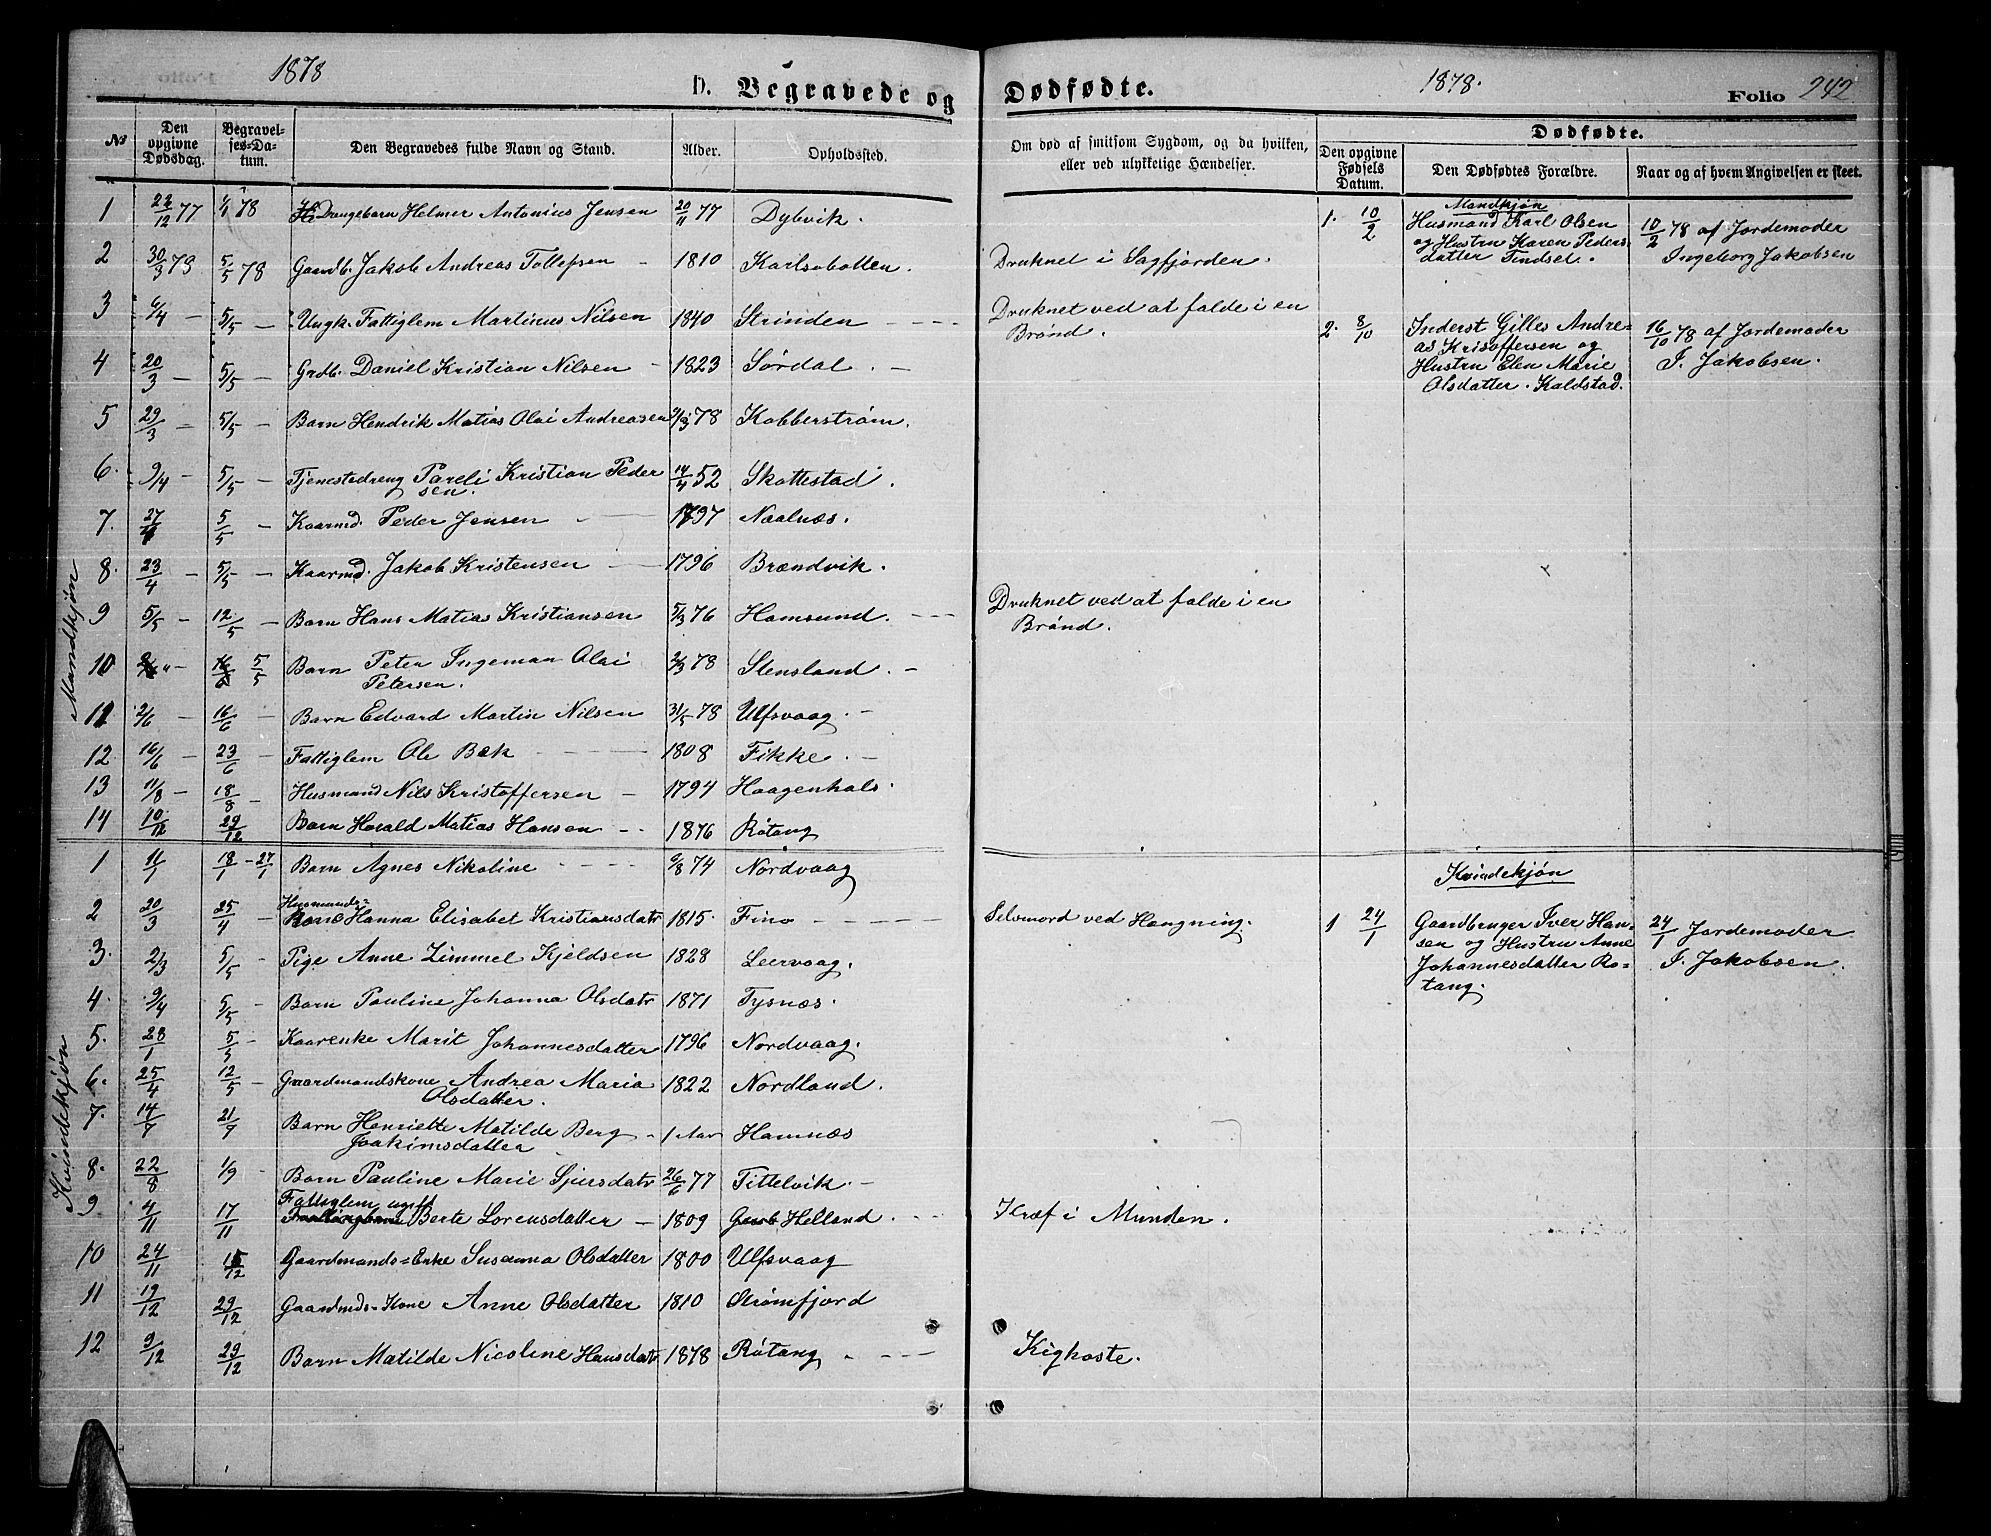 1878
D. Begravede og Dødfødte.
1878.
Folio 242
№
Den opgivne Dødsdag.
Begravelses-Datum.
Den Begravedes fulde Navn og Stand.
Alder.
Opholdssted.
Om død af smitsom Sygdom, og da hvilken, eller ved ulykkelige Hændelser.
Dødfødte.
Den opgivne Fødsels Datum.
Den Dødfødtes Forældre.
Naar og af hvem Angivelsen er skeet.
Mandkjøn
1 22/12 77 1/1 78 Drengebarn Helmer Antonius Jensen 20/11 77 Dybvik.
2 30/3 73 5/5 78 Gaardb. Jakob Andreas Tollefsen – 1810 Karlsobotten. Druknet i Sagfjorden.
3 6/4 – 5/5 – Ungk. Fattiglem Martinus Nilsen 1840 Strinden – – – Druknet ved at falde i en
Brønd.
4 20/3 – 5/5 – Grdb. Daniel Kristian Nilsen – 1823 Sørdal. –
5 29/3 – 5/5 – Barn Hendrik Matias Olai Andreasen 2/3 78 Kobberstrøm.
6. 9/4 – 5/5 – Tjenestedreng Pareli Kristian Peder
sen. 14/4 52 Skottestad.
7. 27/4 5/5 – Kaarmd. Peder Jensen – 1797 Naalnæs.
8. 23/4 – 5/5 – Kaarmd. Jakob Kristensen – 1796 Brændvik.
9 5/5 – 12/5 – Barn Hans Matias Kristiansen 5/3 76 Hamsund. – – – Druknet ved at falde i en
Brønd.
10 16/6 5/5 Barn Peter Ingeman Olai
Petersen. 2/3 78 Stensland. –
11 2/6 – 16/6 – Barn Edvard Martin Nilsen 31/5 78 Ulfsvaag. –
12 16/6 – 23/6 – Fattiglem Ole Bæk – – – 1808 Fikke. –
13 11/8 – 18/8 – Husmand Nils Kristoffersen – 1794 Haagenhals.
14 10/12 29/12 Barn Harald Matias Hansen – – 1876 Røtang
Mandkjøn
1. 10/2 Husmand Karl Olsen
og Hustru Karen Peders-
datter Tindset.
10/2 78 af Jordemoder
Ingeborg Jakobsen
2. 8/10 Inderst Gilles Andre-
as Krisoffersen og
Hustru Elen Marie
Olsdatter. Kaldstad.
16/10 78 af Jordemoder
I. Jakobsen.
Kvindekjøn
1 11/1 18/1 – 27/1 Barn Agnes Nikoline – – – 6/8 74 Nordvaag
2 20/3 25/4 – Husmands-
Kone Hanna Elisabet Kristiansdatr 1815. Finø – – – – Selvmord ved Hængning.
3. 2/3 5/5 – Pige Anne Zimmel Kjeldsen 1828 Leervaag.
4. 9/4 5/5 – Barn Pauline Johanna Olsdatr 1871 Tysnæs.
5. 28/1 5/5 – Kaarenke Marit Johannesdatter 1796 Nordvaag.
6. 25/4 12/5 – Gaardmandskone Andrea Maria
Olsdatter. 1822 Nordland.
7. 14/7 21/7 Barn Henriette Matilde Berg
Joakimsdatter – 1 Aar Hamnæs
8. 22/8 1/9 – Barn Pauline Marie Sjursdatr 26/6 77 Tittelvik. –
9 4/11 17/11 Fattiglem ugift
Berte Lorensdatter – 1809 Helland. – – Kræf i Munden.
10 24/11 15/12 Gaardmands=Enke Susanna Olsdatter 1800 Ulfsvaag
11 19/12 29/12 Gaardmds-Kone Anne Olsdatter 1810 Strømfjord
12 9/12 29/12 Barn Matilde Nicoline Hansdatr 1878 Røtang – – – Kighoste.
Kvindekjøn
1 24/1 Gaardbruger Iver Han-
sen og Hustru Anne
Johannesdatter Rø-
tang.
24/1 Jordemoder
I. Jakobsen.